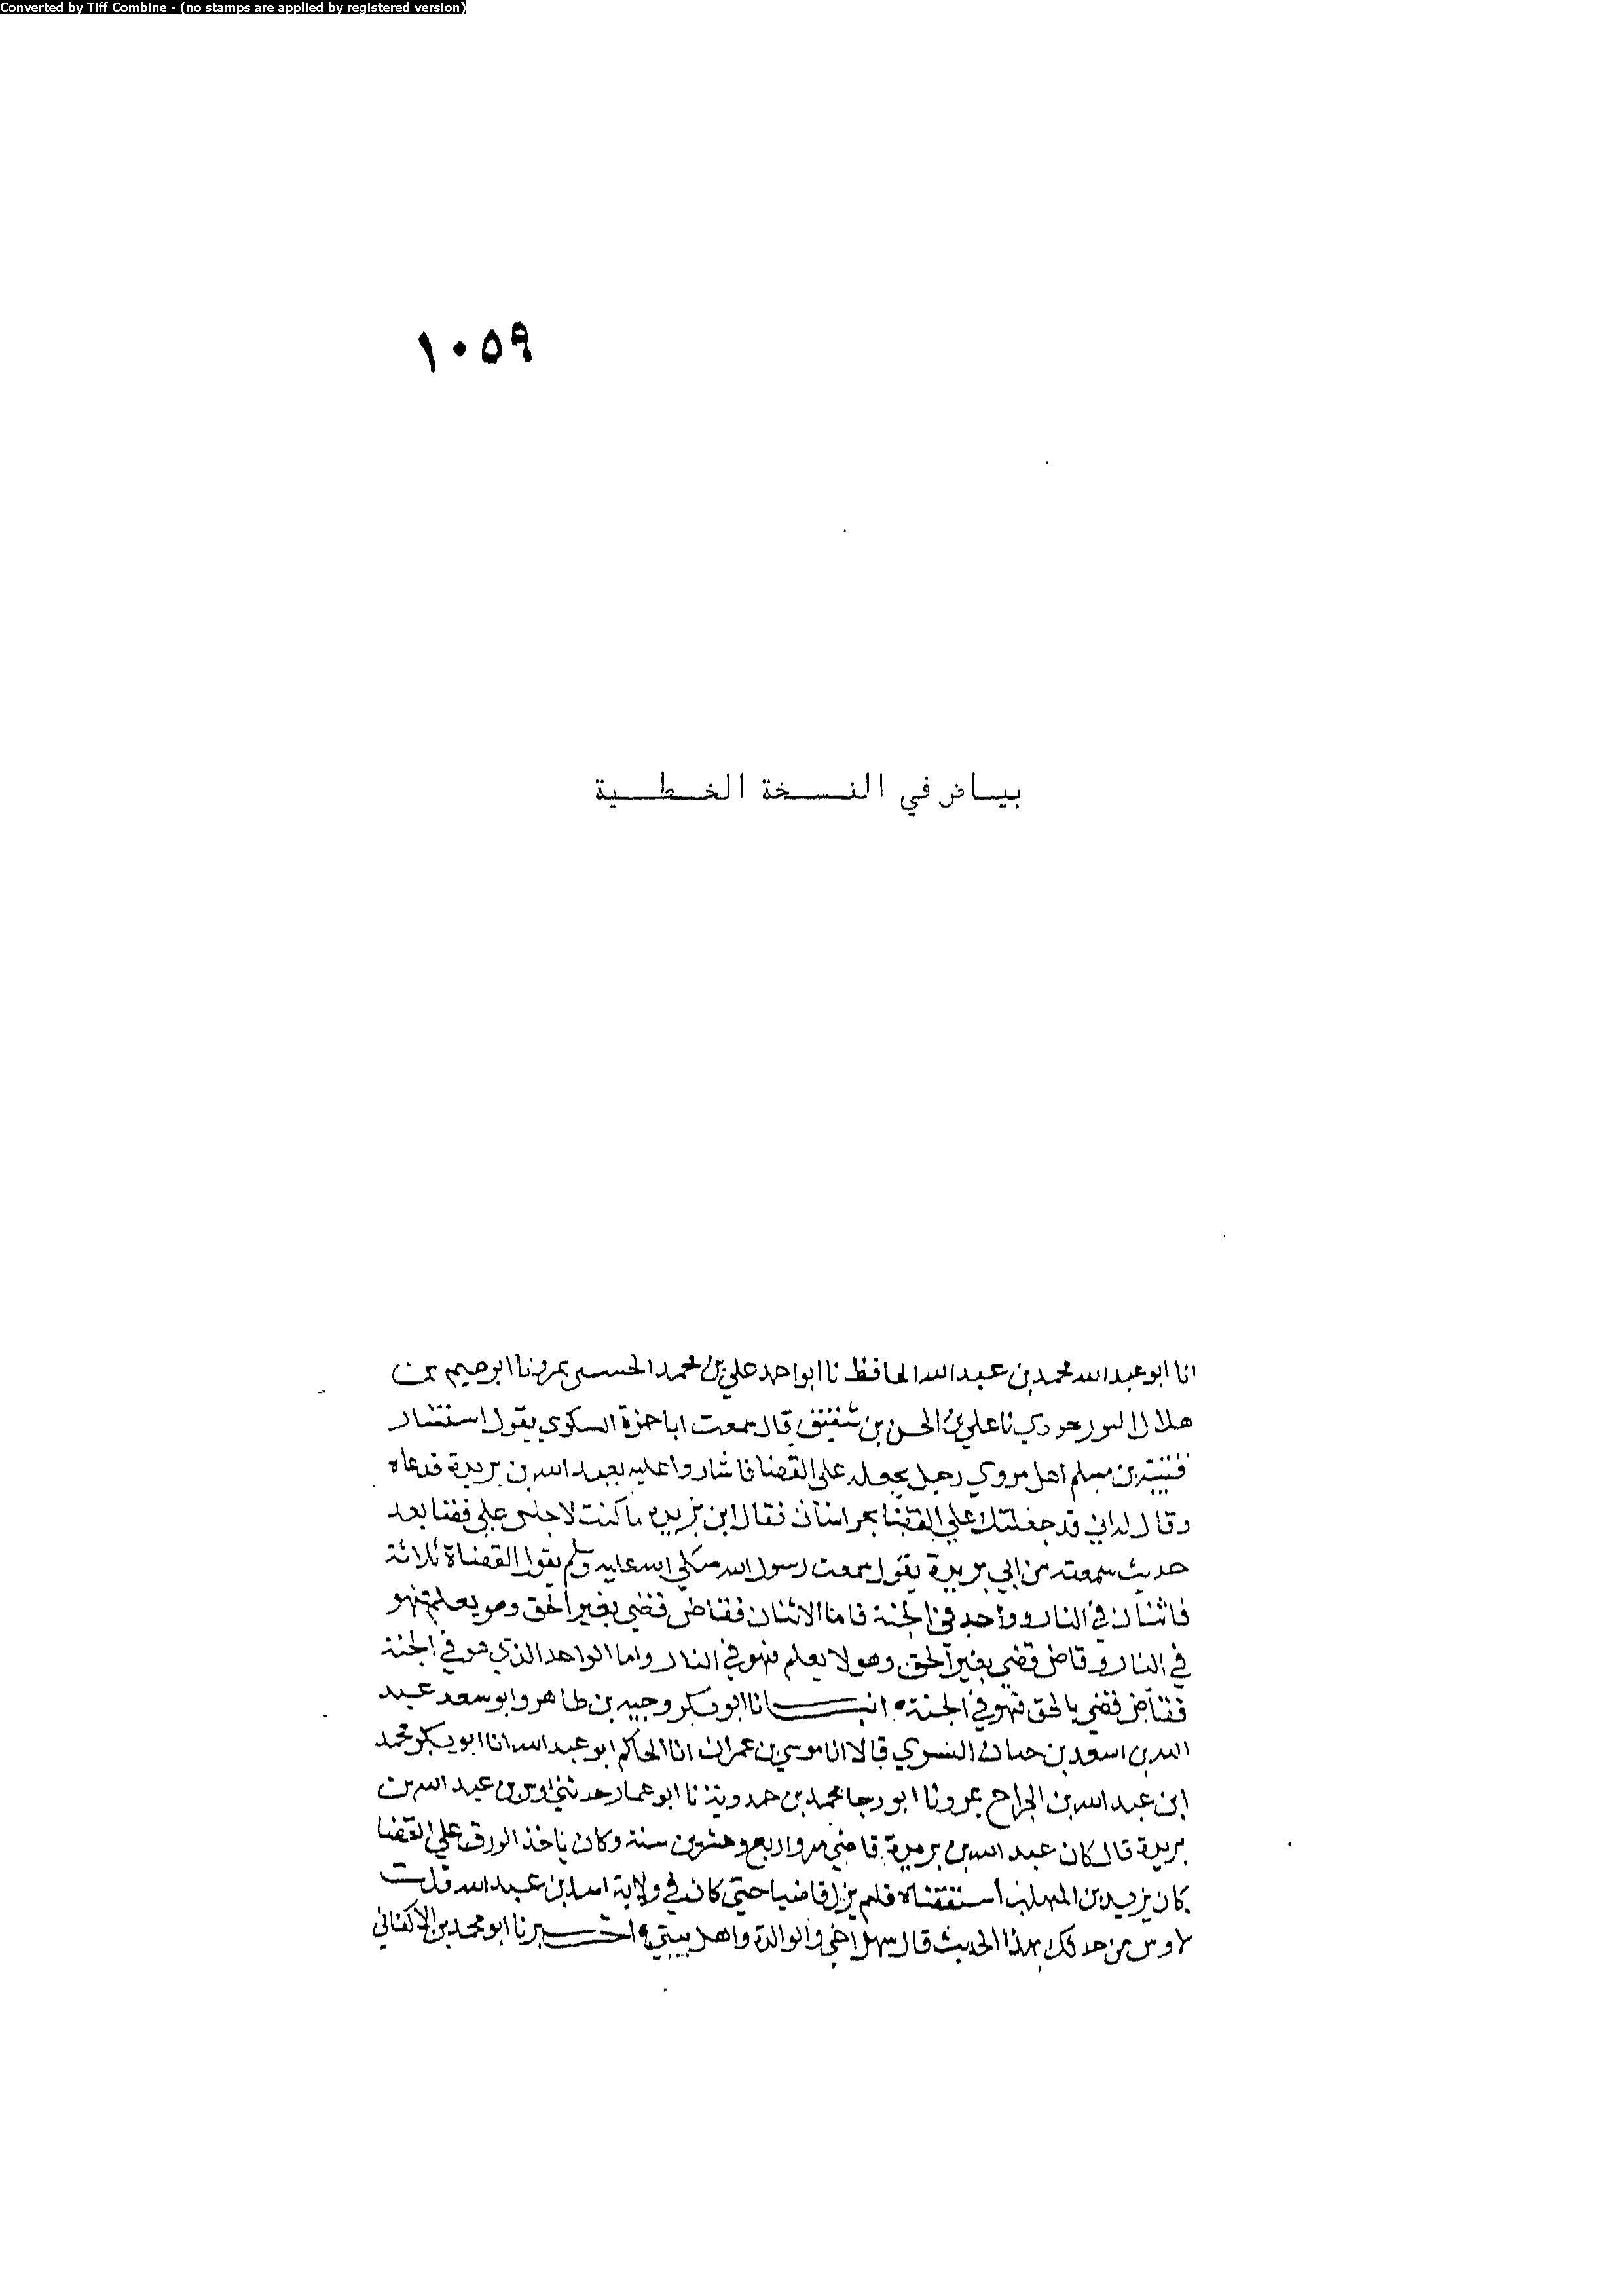 Converted by Tiff Combine - (no stamps are applied by registered version)
١٠٥٩
بياض في النسخة الخطية
انا ابو عبد الله محمد بن عبد الله الحافظ نا ابو احمد علي بن محمد الحسـى بمرو نا ابرهيم بن
هلال نا علي بن الحسن بن شقيق قال سمعت ابا حمزة السكري يقول استشار
قتيبة بن مسلم اهل مرو في رجل يجعله على القضا فاشاروا عليه بعبد الله بن بريدة فدعاه
وقال له اني قد جعلتك علي القضا بخراسان فقال ابن بريده ما كنت لاجلس علي قضا بعد
حديث سمعته من ابي بريدة يقول سمعت رسول الله صلى الله عليه وسلم يقول القضاة ثلاثة
فاثنان في النار وواحد في الجنة فاما الاثنان فقاض قضي بغير الحق وهو يعلم فهو
في النار وقاض قضي بغير الحق وهو لا يعلم فهو في النار واما الواحد الذي هو في الجنة
فقاض قضي بالحق فهو في الجنة. انبـــانا ابو بكر وجيه بن طاهر وابو سعد عبد
الله بن اسعد بن حيان النسوي قالا انا موسي بن عمران انا الحاكم ابو عبد الله انا ابو بكر محمد
ابن عبد الله بن الجراح بمرو نا ابو رجا محمد بن حمدوية نا ابو عمار حدثني اوس بن عبد الله بن
بريدة قال كان عبد الله بن بريدة قاضي مرو اربع وعشرين سنة وكان ياخذ الورق علي القضا
كان يزيد بن المهلب استقضاه فلم يزل قاضيا حتي كان في ولاية اسد بن عبد الله قلت
لاوس من حدثك بهذا الحديث قال سهل اخي والوالدة واهل بيتي. اخـــبرنا ابو محمد بن الاكفاني